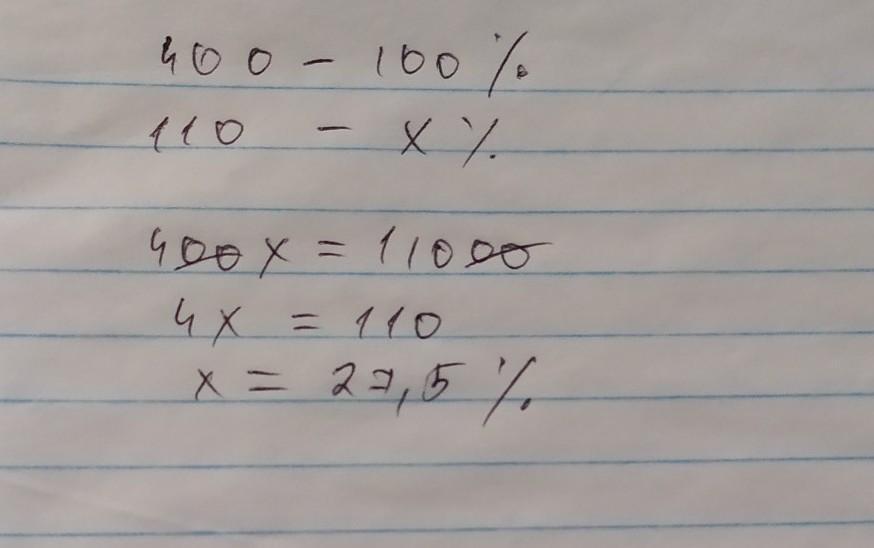 400 - 100%
110 - x%
400x = 11000
4x = 110
x = 27,5%